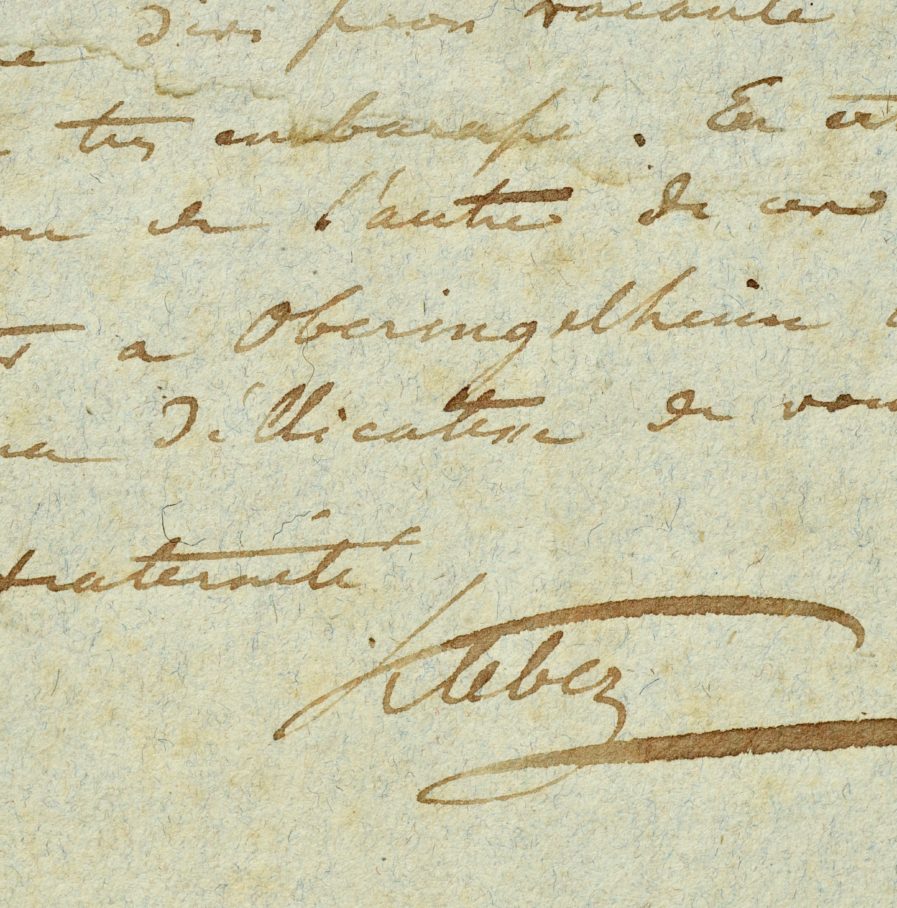 division vacante
très embarassé. En
ou de l'autre de ces
a Oberingelheim
déllicatesse de vous
fraternité
Kleber